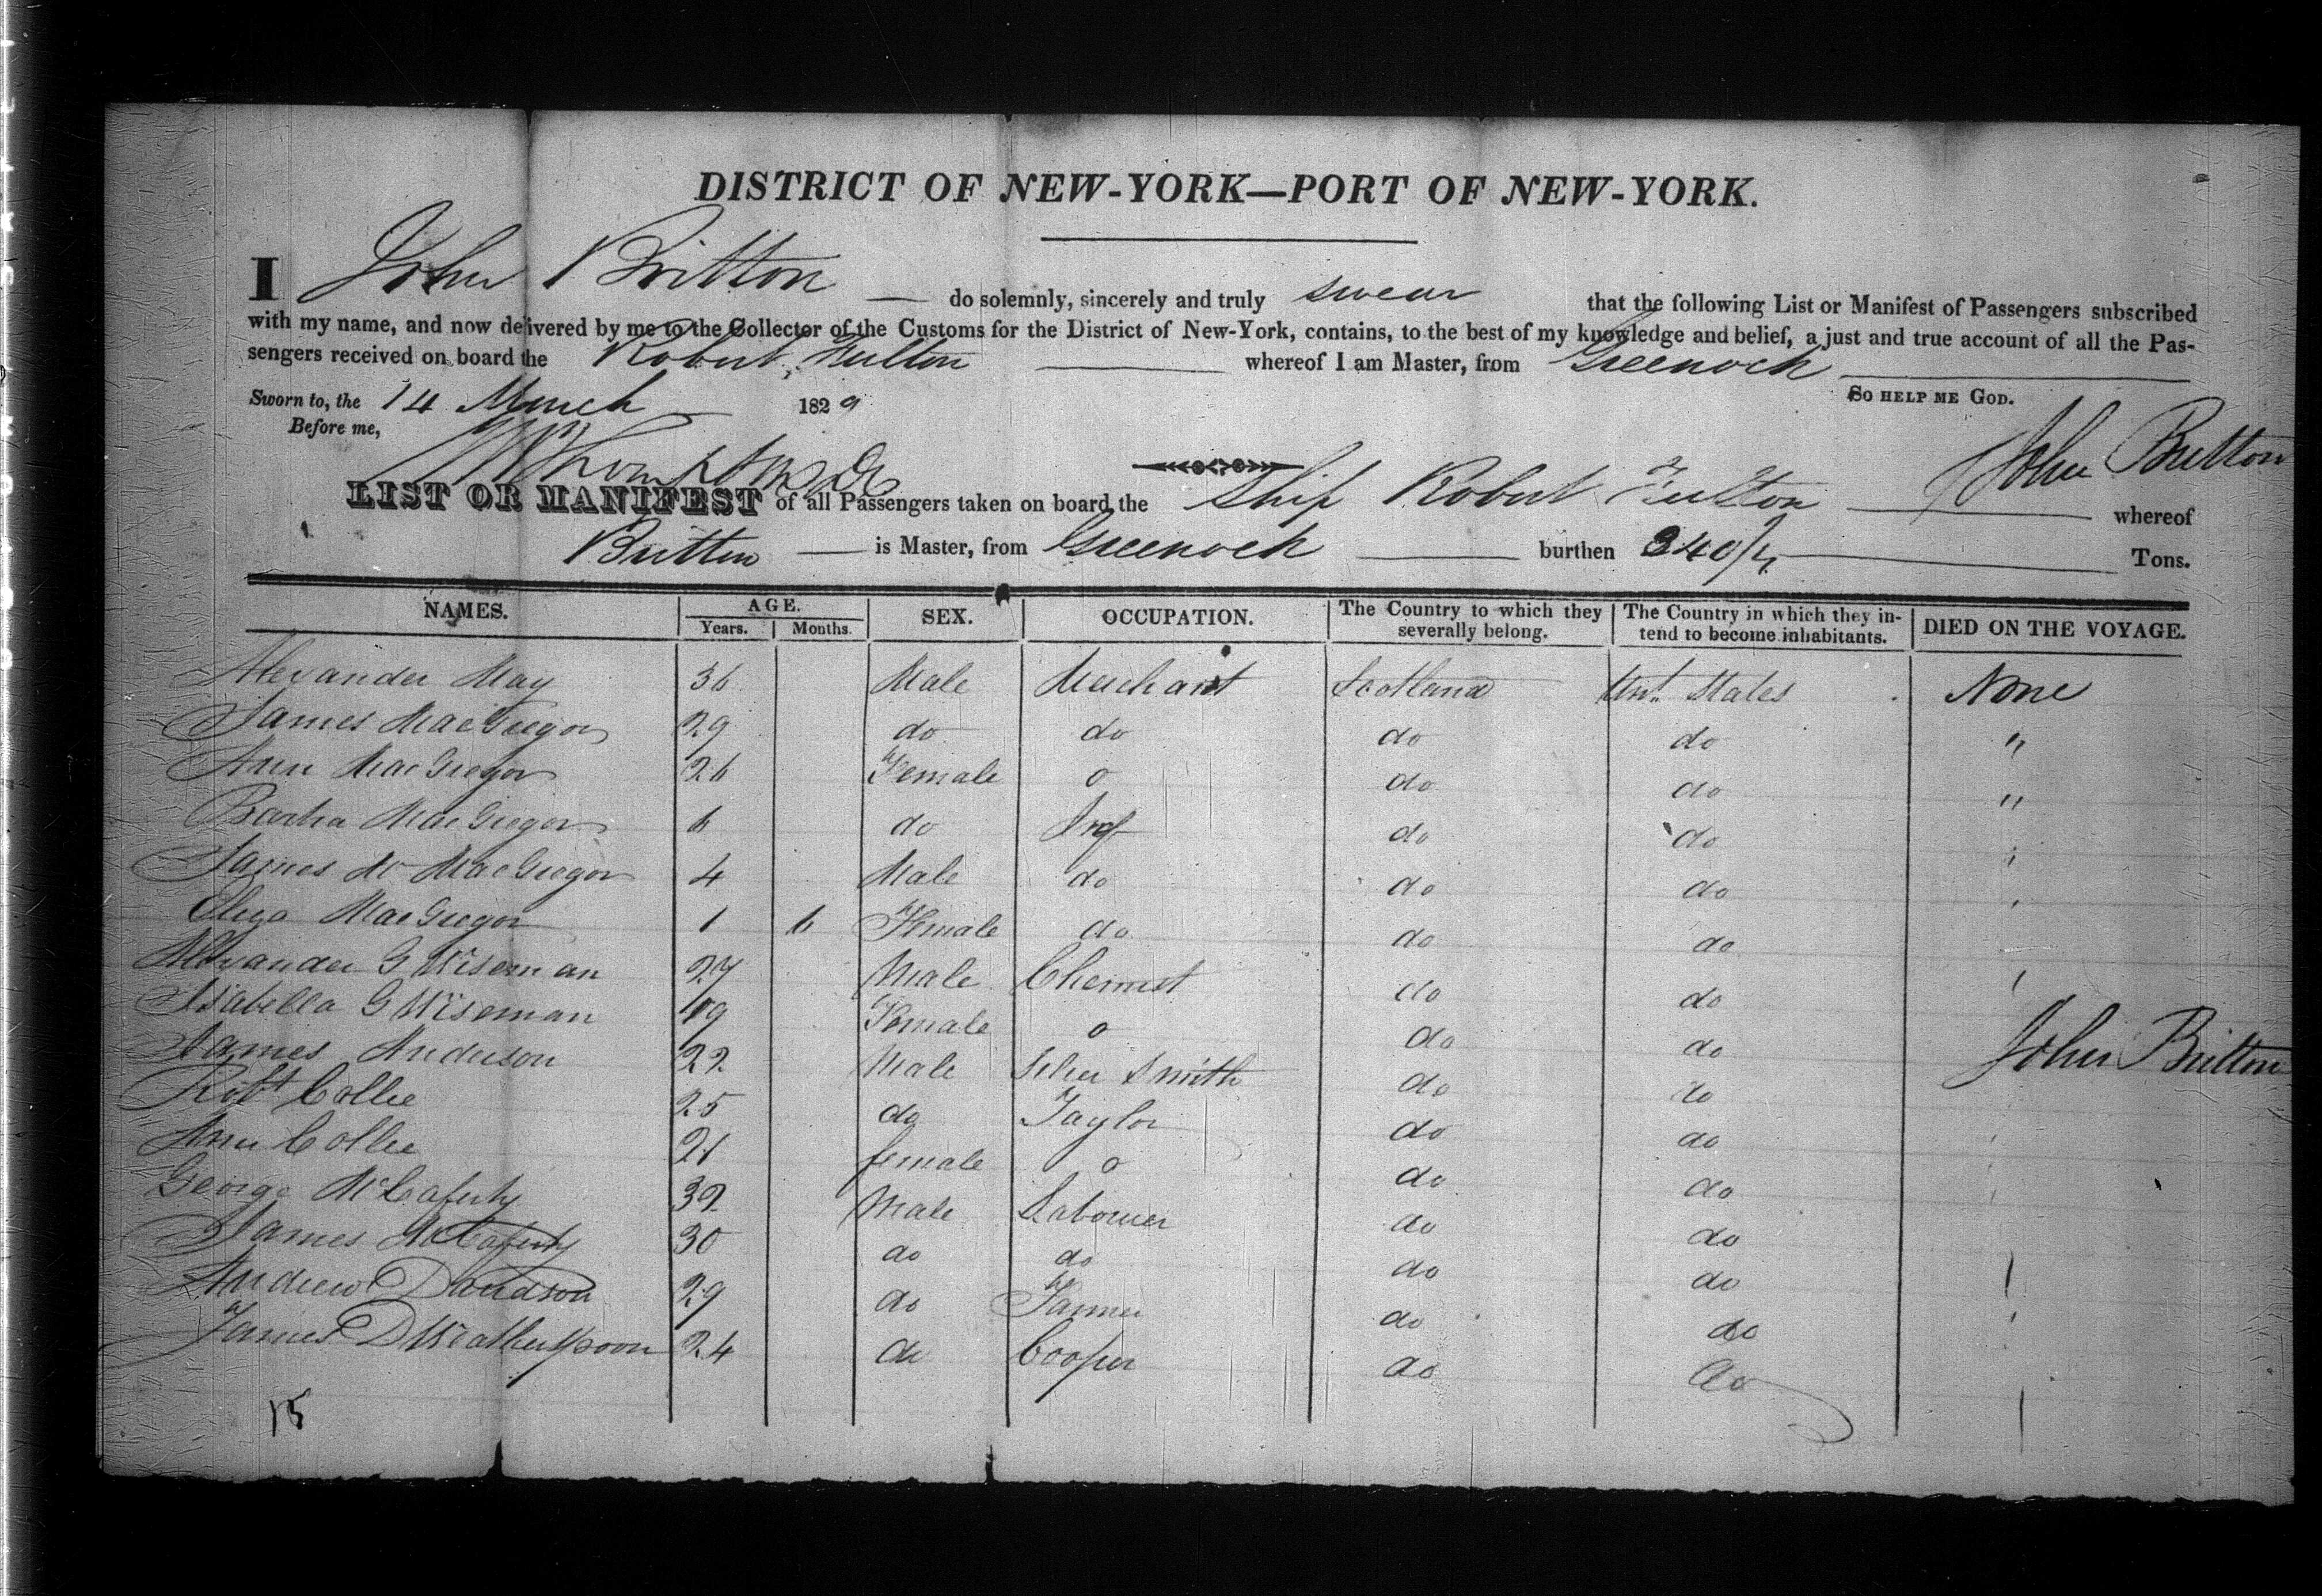 DISTRICT OF NEW-YORK—PORT OF NEW-YORK.
I John Britton do solemnly, sincerely and truly swear that the following List or Manifest of Passengers subscribed
with my name, and now delivered by me to the Collector of the Customs for the District of New-York, contains, to the best of my knowledge and belief, a just and true account of all the Pas-
sengers received on board the Robert Fulton whereof I am Master, from Greenock
So help me God.
Sworn to, the 14 March 1829
Before me,
John Britton
LIST OR MANIFEST of all Passengers taken on board the Ship Robert Fulton whereof
Britton is Master, from Greenock burthen 340 Tons.
NAMES. AGE. Years. Months. SEX. OCCUPATION. The Country to which they severally belong. The Country in which they intend to become inhabitants. DIED ON THE VOYAGE.
Alexander May 36 Male Merchant Scotland Unt. States None
James MacGregor 29 do do do do "
Ann MacGregor 26 Female o do do "
MacGregor 6 do Inf do do
James MacGregor 4 Male do do do
Eliza MacGregor 1 6 Female do do do
Alexander G Wiseman 27 Male Chemist do do
Isabella G Wiseman 19 Female o do do
James Anderson 22 Male Silver Smith do do John Britton
Robt Collie 25 do Taylor do do
Ann Collie 21 female o do do
George McCaferty 32 Male Labourer do do
James McCaferty 30 do do do do
Andrew Davidson 29 do Farmer do do
James D Weatherspoon 24 do Cooper do do
15